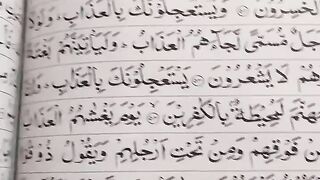 الْخٰسِرُوْنَ ۝ وَيَسْتَعْجِلُوْنَكَ بِالْعَذَابِ ؕ وَلَوْلَا
جَلٌ مُّسَمًّى لَّجَآءَهُمُ الْعَذَابُ ؕ وَلَيَاْتِيَنَّهُمْ بَغْتَةً
هُمْ لَا يَشْعُرُوْنَ ۝ يَسْتَعْجِلُوْنَكَ بِالْعَذَابِ ؕ وَاِنَّ
هَنَّمَ لَمُحِيْطَةٌۢ بِالْكٰفِرِيْنَ ۝ يَوْمَ يَغْشٰهُمُ الْعَذَابُ
مِنْ فَوْقِهِمْ وَمِنْ تَحْتِ اَرْجُلِهِمْ وَيَقُوْلُ ذُوْقُ